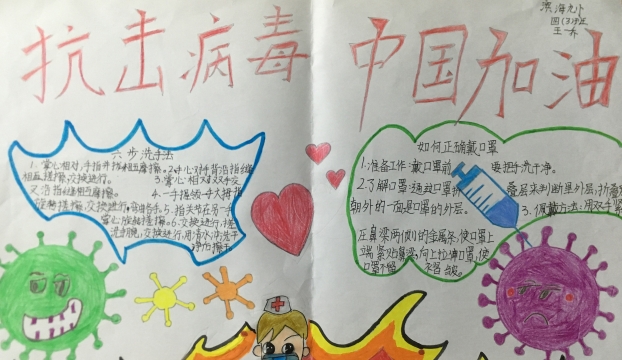 抗击病毒 中国加油
六步洗手法
1.掌心相对,手指并拢相互摩擦。2.手心对手背沿指缝
相互搓擦,交换进行。 3.掌心相对双手交
叉沿指缝相互摩擦。 4.一手握另一手大拇指
旋转搓擦,交换进行。 5.指关节在另一手
掌心旋转搓擦,交换进行
如何正确戴口罩
1.准备工作:戴口罩前 要把手洗干净。
2.了解口罩:通过口罩折 叠层来判断里外层,折
朝外的一面是口罩的外层。 3.佩戴方法:用双手紧
压鼻梁两侧的金属条,使口罩上
端紧贴鼻梁,向上拉伸口罩,使
口罩不留